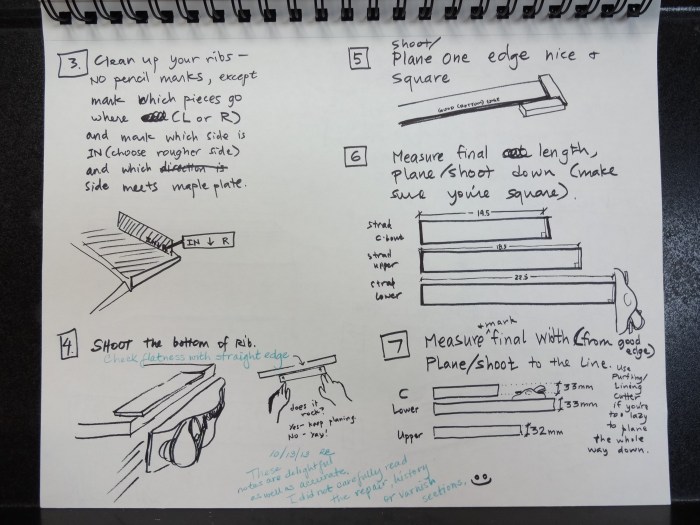 3. Clean up your ribs —
NO pencil marks, except
mark which pieces go
where (L or R)
and mark which side is
IN (choose rougher side)
and which direction is
side meets maple plate.
IN ↓ R
4. SHOOT the bottom of Rib.
Check flatness with straight edge
does it
rock?
Yes - keep planing.
No - Yay!
10/13/13
These
notes are delightful
as well as accurate.
I did not carefully read
the repair, history
or varnish
sections.
5 Shoot/
Plane one edge nice +
Square
GOOD (BOTTOM) EDGE
6 Measure final length,
plane/shoot down (make
sure you're square).
14.5
strad
c-bout
strad
upper
22.5
strad
lower
7 Measure *mark final width (from good
edge)
Plane/shoot to the line.
C
33mm
Lower
33mm
Upper
32mm
Use
Purfling/
Lining
cutter
if you're
too lazy
to plane
the whole
way down.